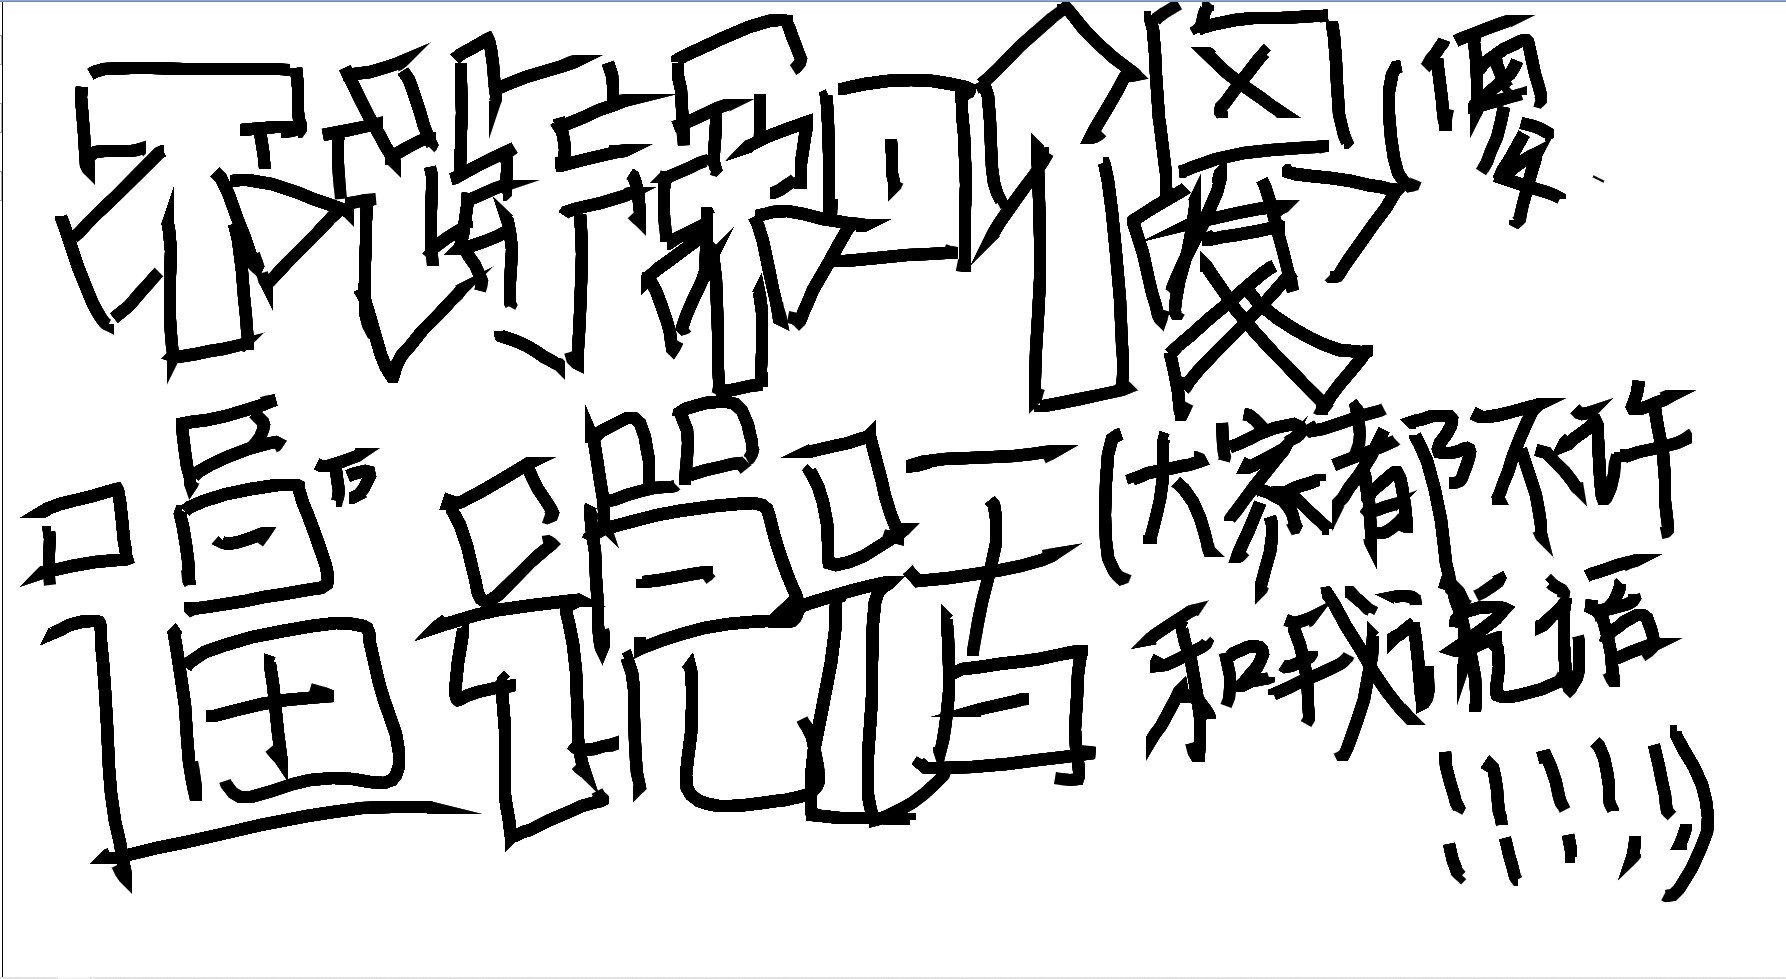 不许和傻(傻
逼说话(大家都不许
和我说话
!!!!!)